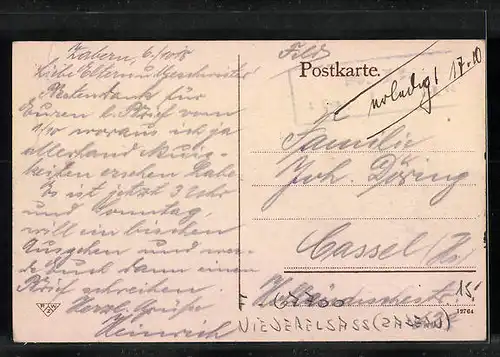 Zabern, 6/10 18
Liebe Eltern u Geschwister!
Besten Dank für
Euren l. Brief vom
1/10 woraus ich ja
allerhand Neuig-
keiten ersehen habe
Es ist jetzt 3 Uhr
und Sonntag,
will ein bischen
Ausgehen und wer-
de Euch dann einen
Brief schreiben.
Herzl. Grüße
Heinrich
Feld
Postkarte.
erledigt 17.10
Familie
Joh. Döring
Cassel (Hs)
15.
12764
NIEDERELSASS (ZABERN)